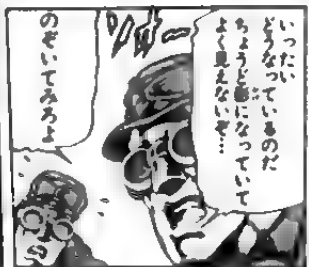 いったい
どうなっているのだ
ちょうど影になっていて
よく見えないぞ…
のぞいてみろよ